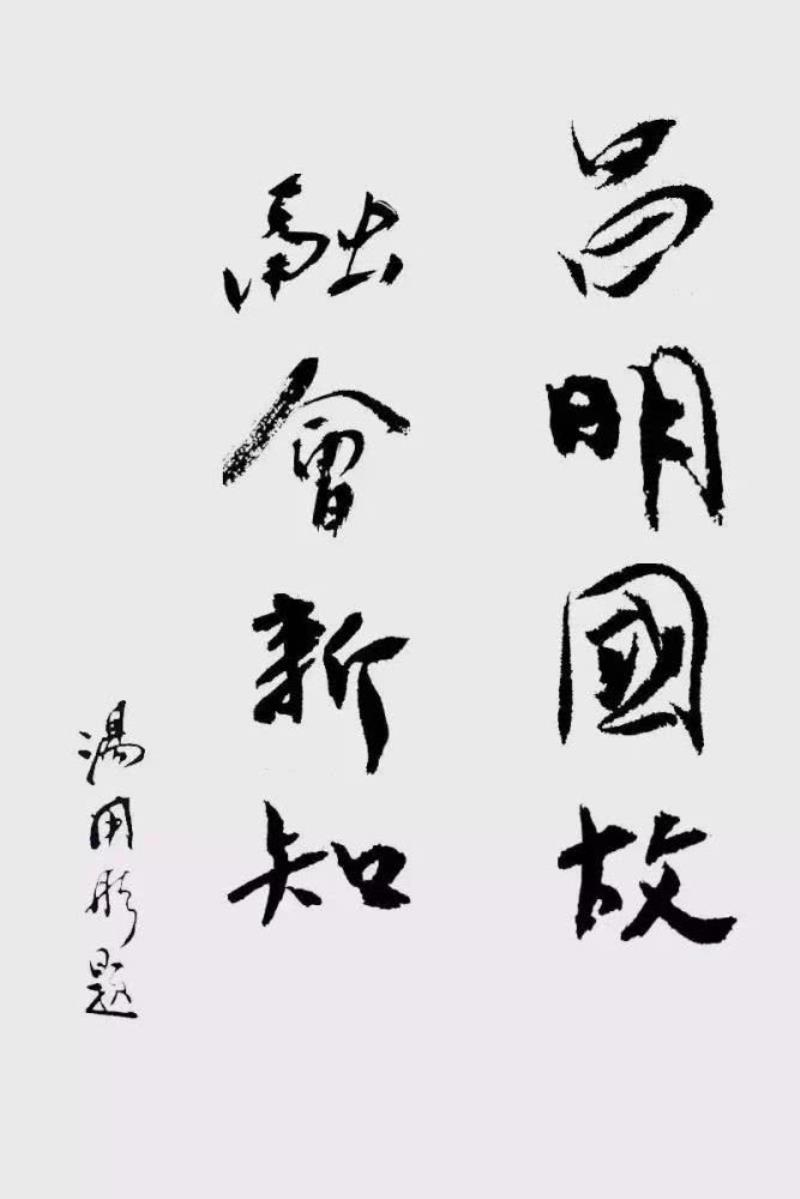 昌明國故
融會新知
湯用彤題